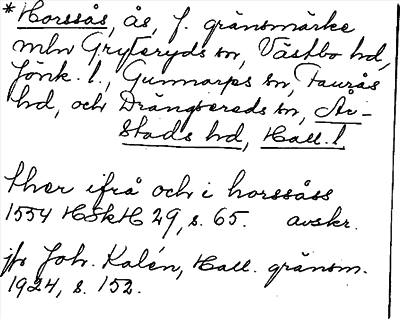 *Horssås, ås, f. gränsmärke
mln Gryteryds sn, Västbo hd,
Jönk. l., Gunnarps sn, Faurås
hd, och Drängsereds sn, År-
stads hd, Hall. l
ther ifrå och i horssåss
1554 HSkH 29, s. 65. avskr.
jfr Joh. Kalén, Hall. gränsm.
1924, s. 152.